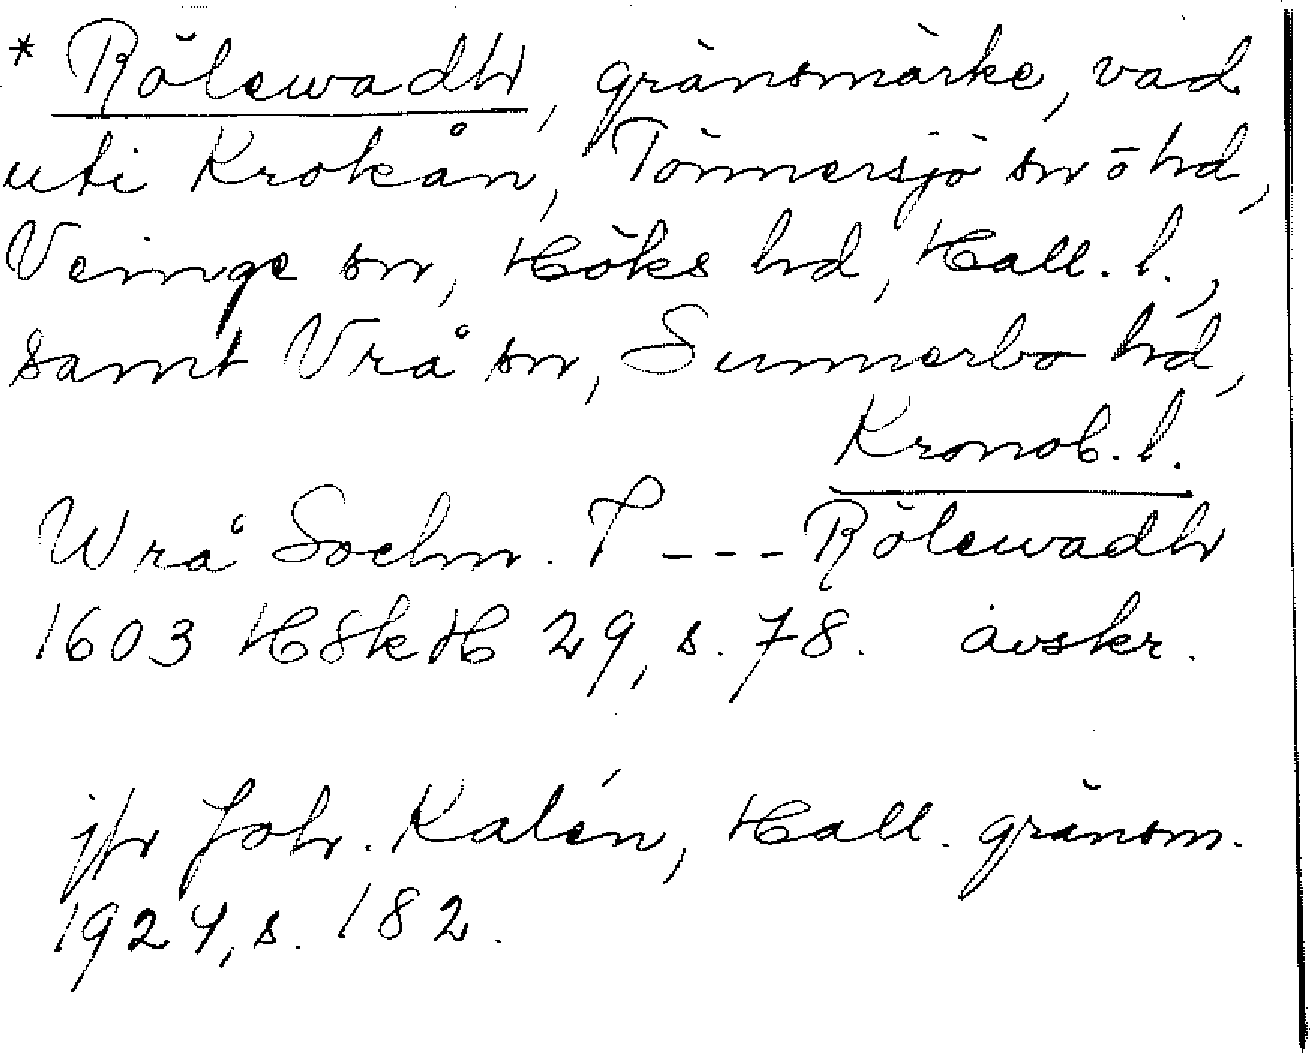 * Rölewadh, gränsmärke, vad
uti Krokån, Tönnersjö sn o hd,
Veinge sn, Höks hd, Hall. l.,
samt Vrå sn, Sunnerbo hd,
Kronob. l.
Wrå Sochn. T --- Rölewadh
1603 HSkH 29, s. 78. avskr.
jfr Joh. Kalén, Hall. gränsm.
1924, s. 182.